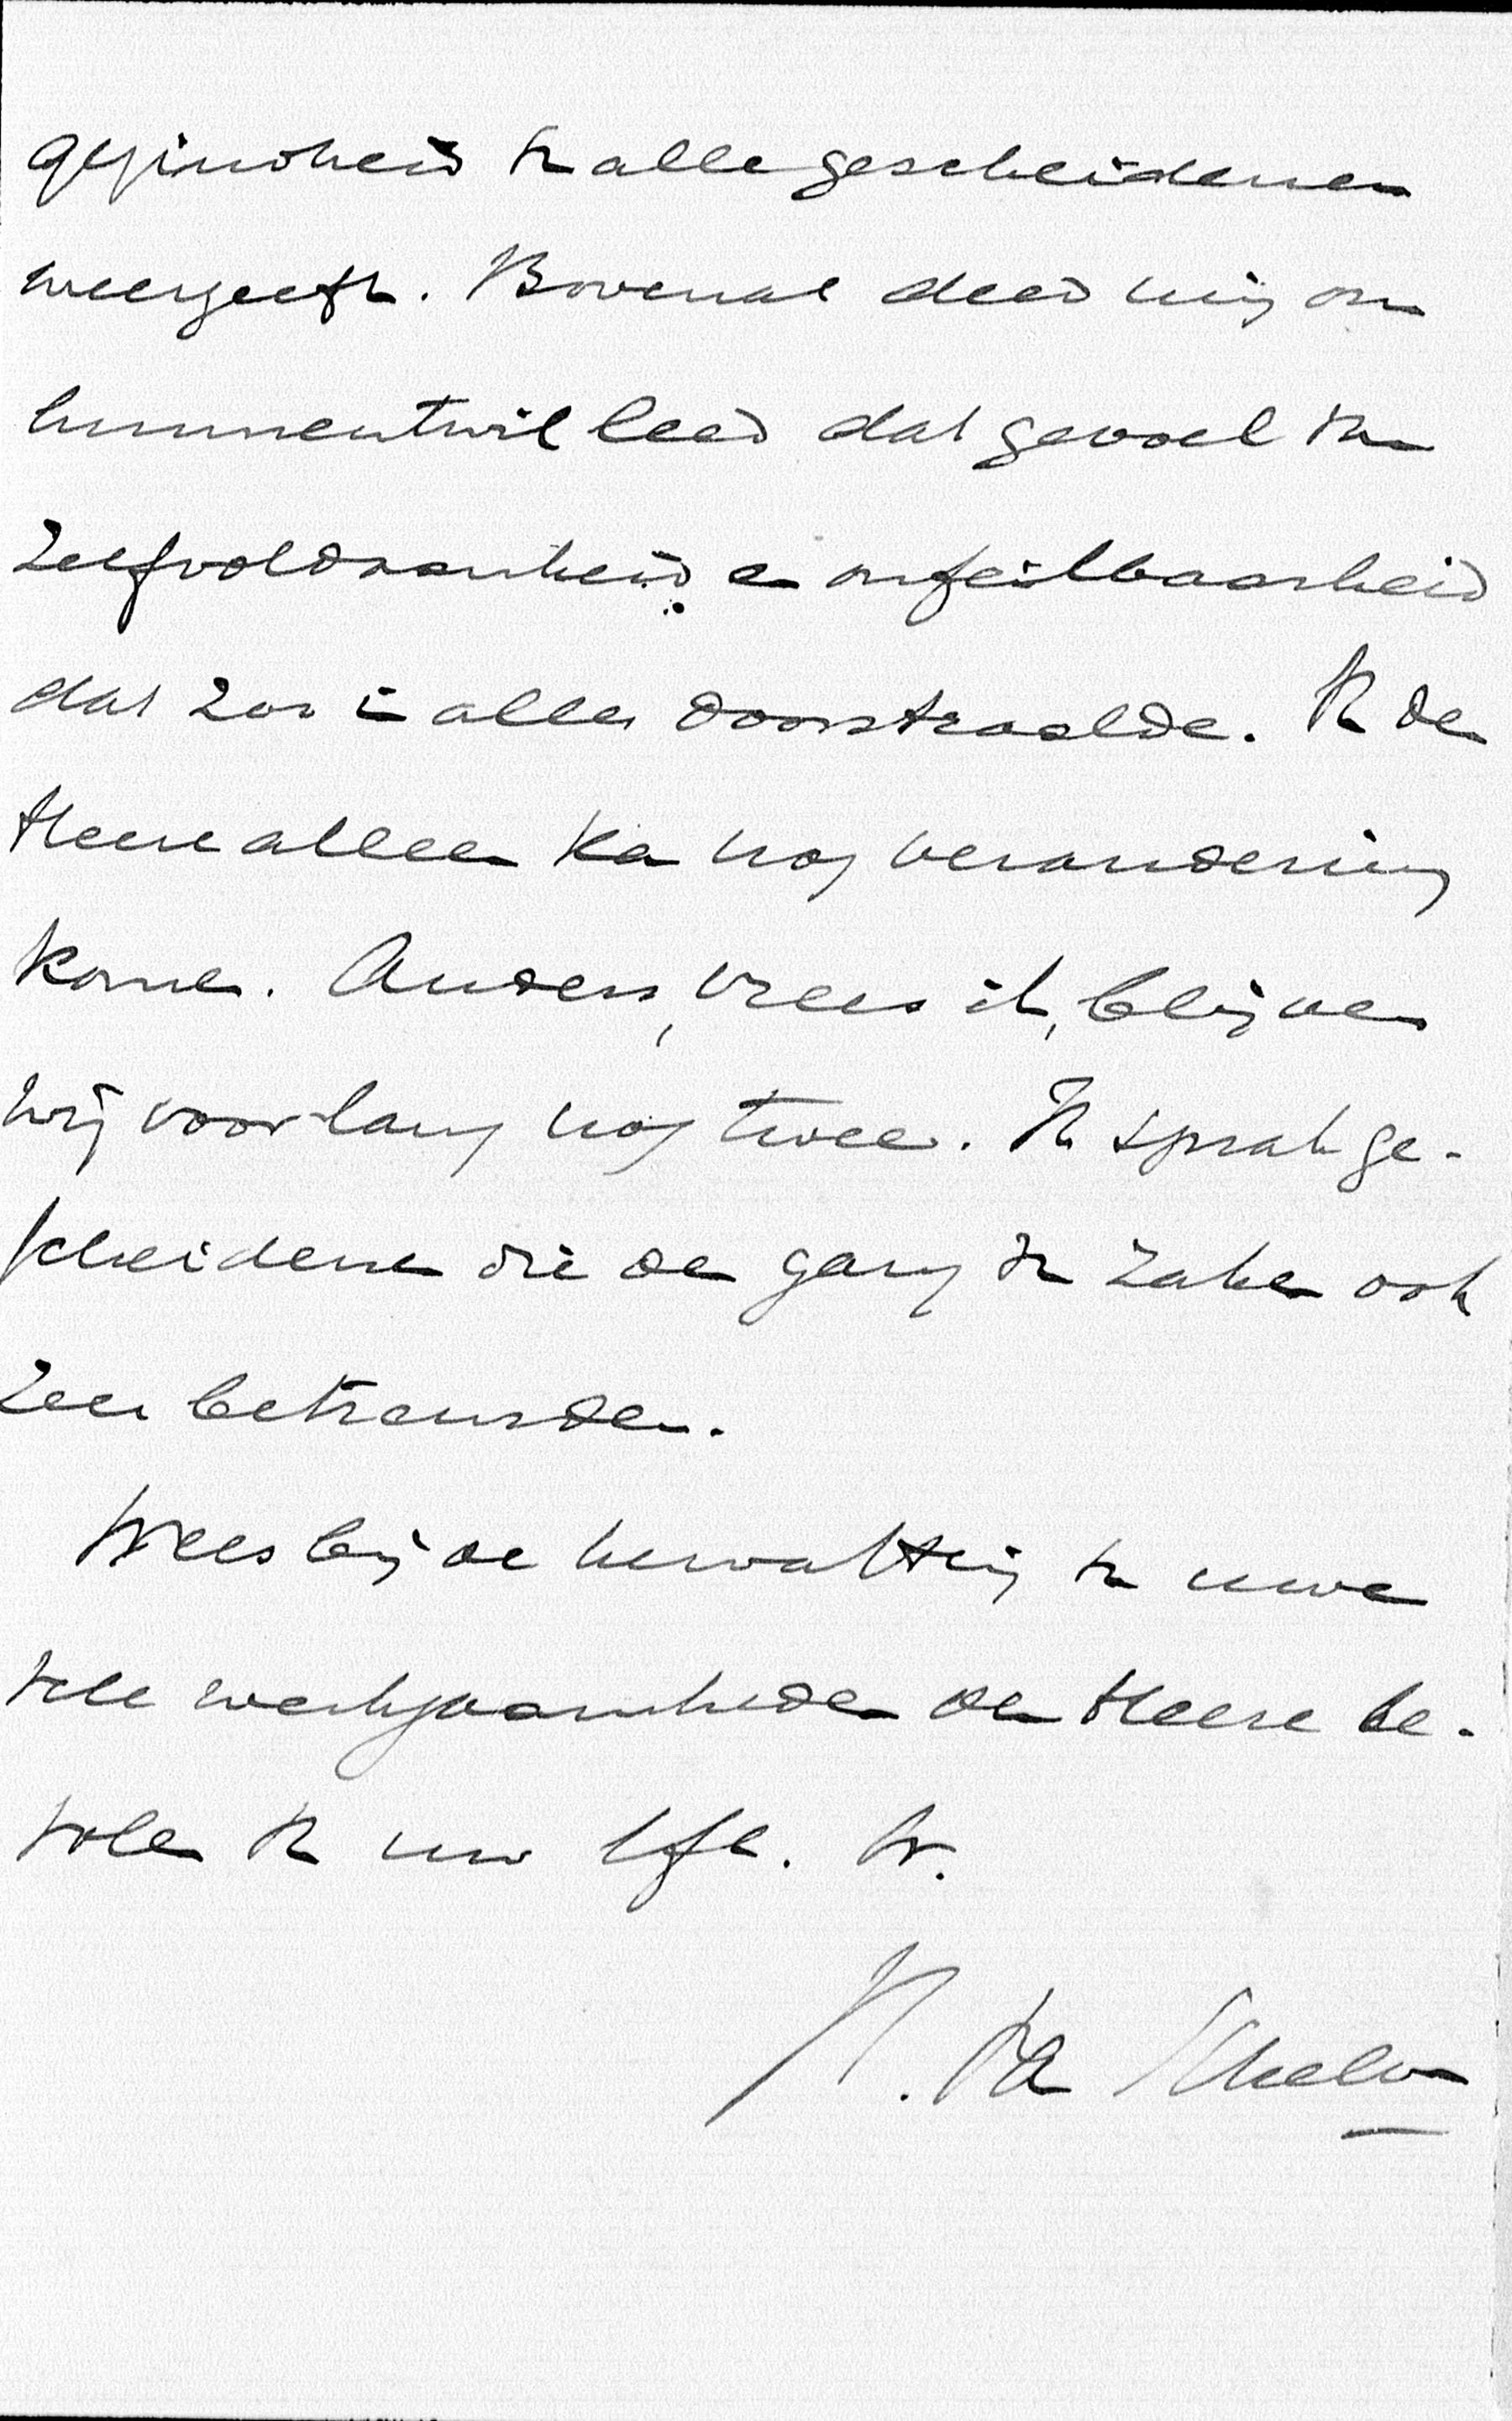 gezindheid v. alle gescheidenen
weergeeft. Bovenal deed mij om
hunnentwil leed dat gevoel van
zelfvoldaanheid en onfeilbaarheid
dat zoo in alles doorstraalde. V. den
Heere alleen kan nog verandering
komen. Anders, vrees ik, blijven
wij voor lang nog twee. Ik sprak ge-
scheidenen die den gang v. zaken ook
zeer betreurden.
Wees bij de hervatting v. uwe
vele werkzaamheden den Heere be-
volen v. uw lfh. br.
N. van Schelven